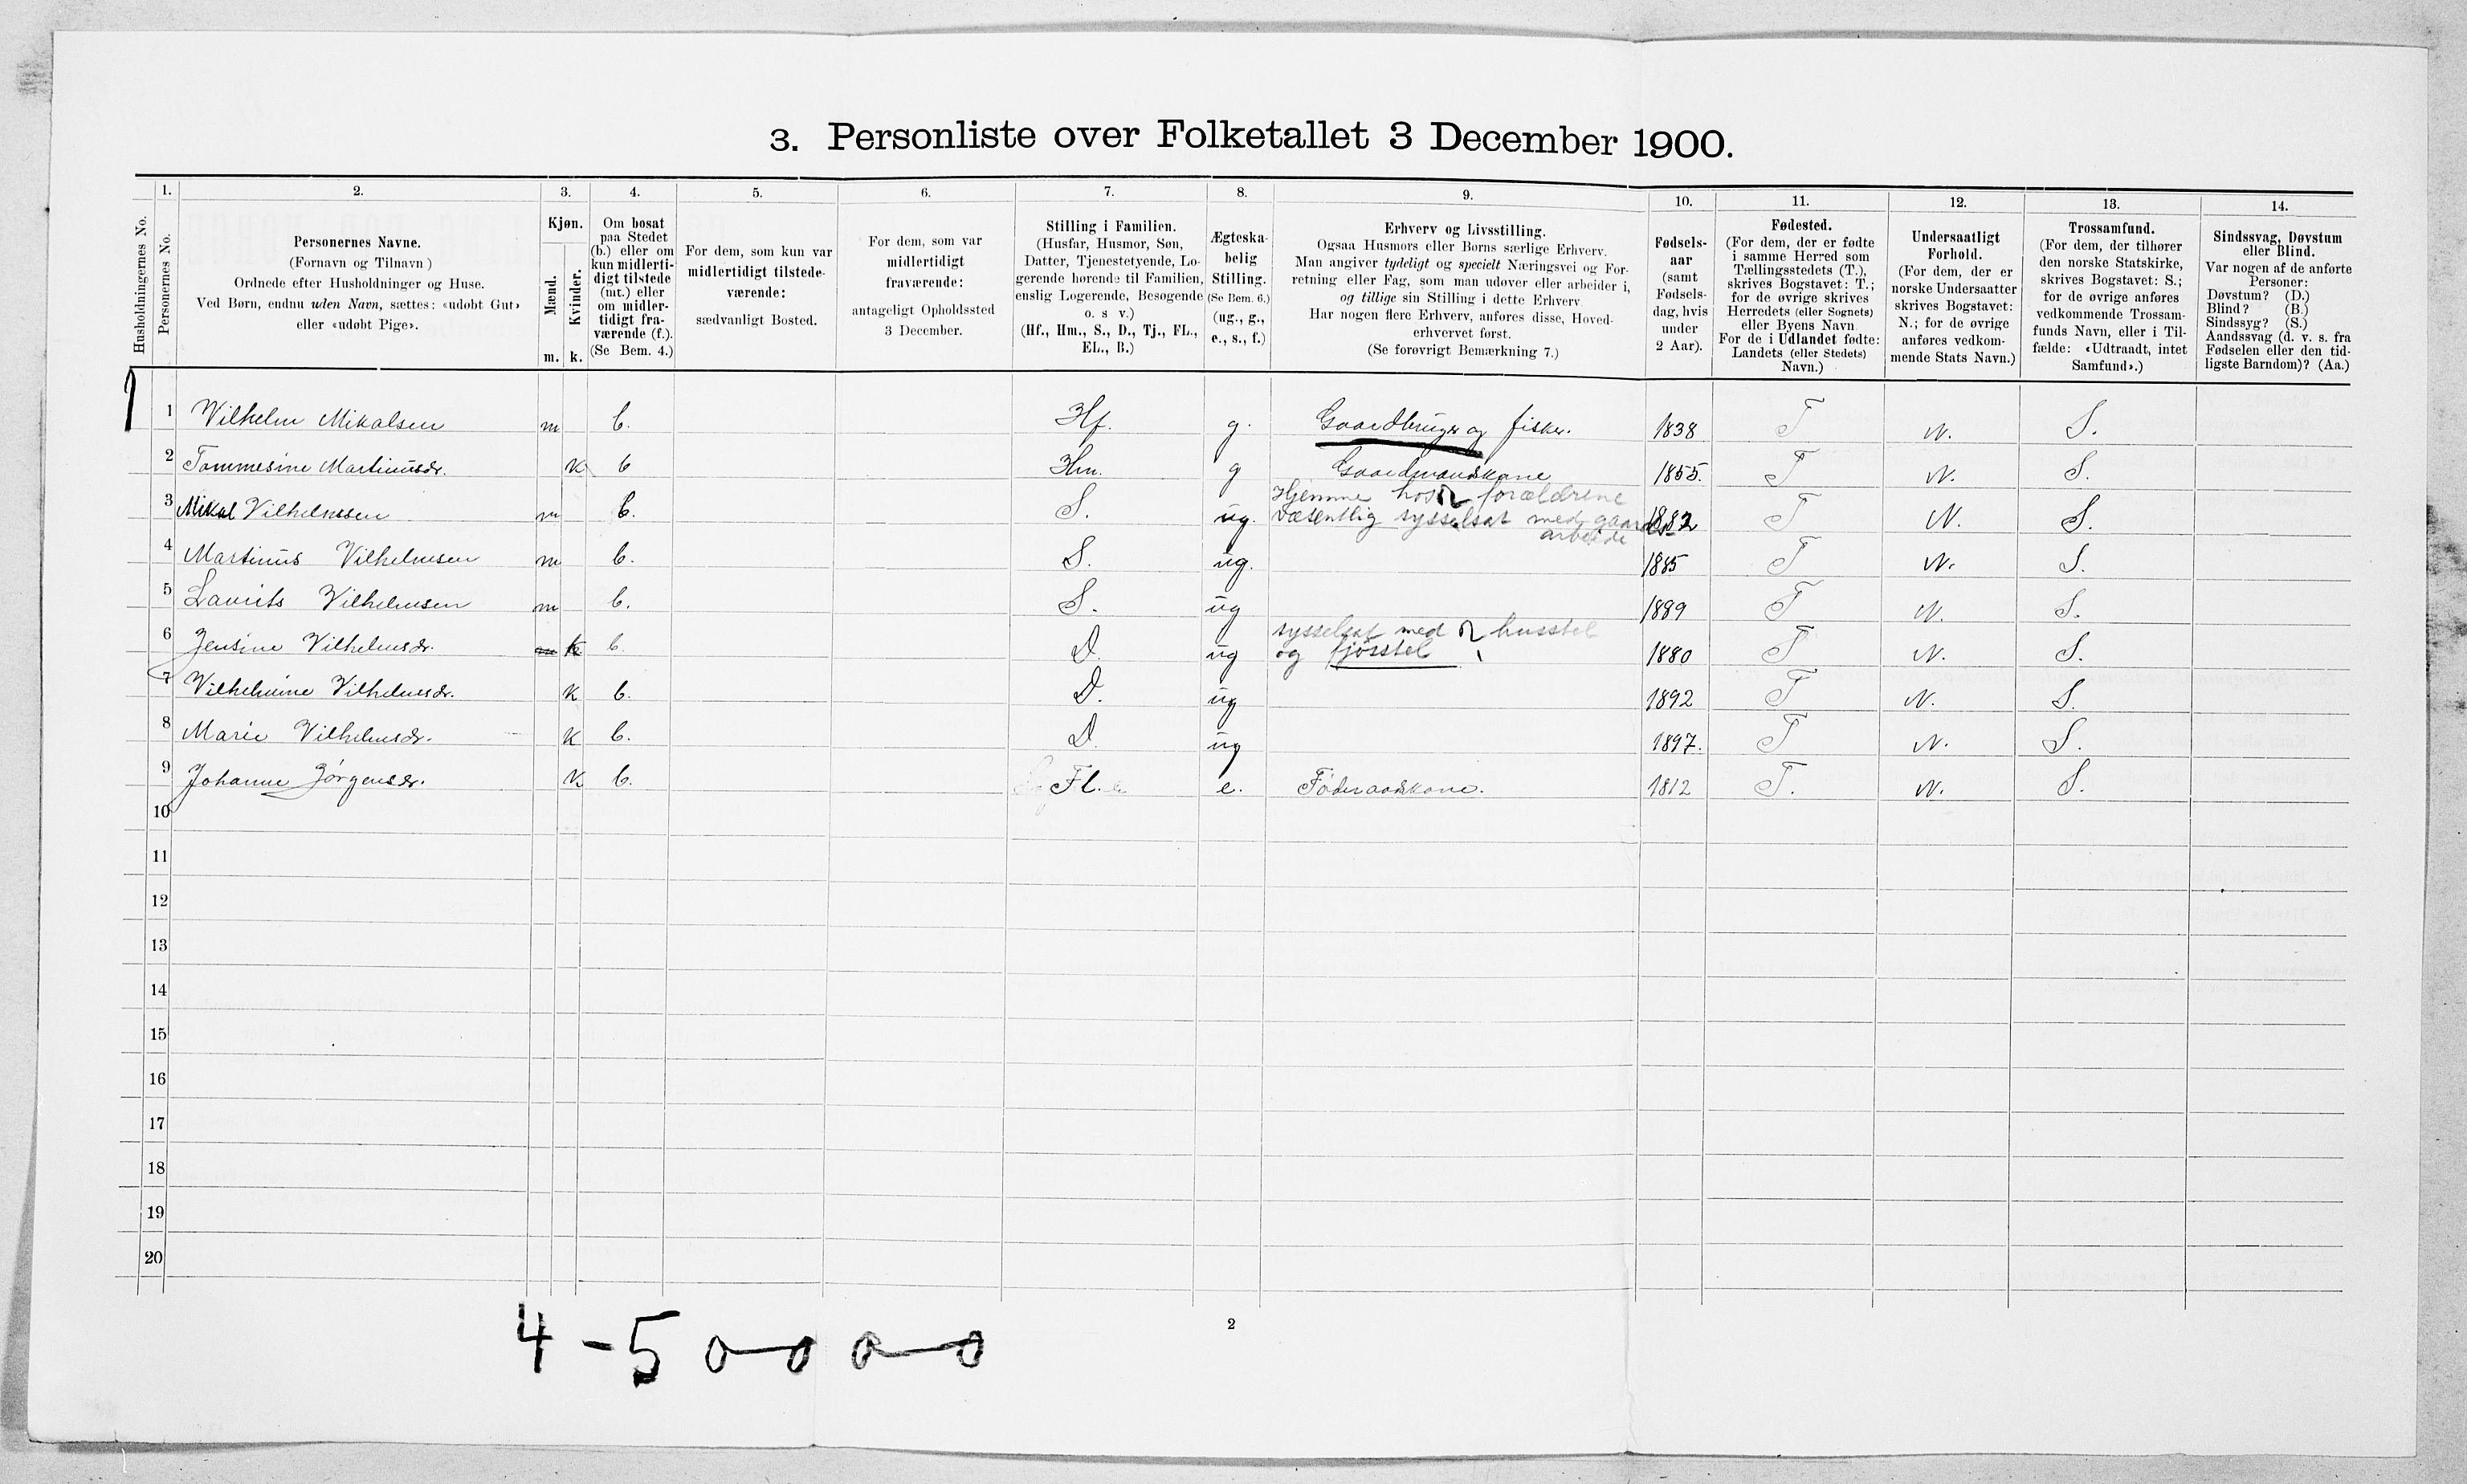 3. Personliste over Folketallet 3 December 1900.
Husholdningernes No.
1.
Personernes No.
2.
Personernes Navne.
(Fornavn og Tilnavn)
Ordnede efter Husholdninger og Huse.
Ved Børn, endnu uden Navn, sættes: «udøbt Gut»
eller «udøbt Pige».
3.
Kjøn.
Mænd. Kvinder.
m. k.
4.
Om bosat
paa Stedet
(b.) eller om
kun midlerti-
digt tilstede
(mt.) eller
om midler-
tidigt fra-
værende (f.).
(Se Bem. 4.)
5.
For dem, som kun var
midlertidigt tilstede-
værende:
sædvanligt Bosted.
6.
For dem, som var
midlertidigt
fraværende:
antageligt Opholdssted
3 December.
7.
Stilling i Familien.
(Husfar, Husmor, Søn,
Datter, Tjenestetyende, Lo-
gerende hørende til Familien,
enslig Logerende, Besøgende
o. s v.)
(Hf., Hm., S., D., Tj., FL.,
EL., B.)
8.
Ægteska-
belig
Stilling.
(Se Bem. 6.)
(ug., g.,
e., s., f.)
9.
Erhverv og Livsstilling.
Ogsaa Husmors eller Børns særlige Erhverv.
Man angiver tydeligt og specielt Næringsvei og For-
retning eller Fag, som man udøver eller arbeider i,
og tillige sin Stilling i dette Erhverv.
Har nogen flere Erhverv, anføres disse, Hoved-
erhvervet først.
(Se forøvrigt Bemærkning 7.)
10.
Fødsels-
aar
(samt
Fødsels-
dag, hvis
under
2 Aar).
11.
Fødested.
(For dem, der er fødte
i samme Herred som
Tællingsstedets (T.),
skrives Bogstavet: T.;
for de øvrige skrives
Herredets (eller Sognets)
eller Byens Navn.
For de i Udlandet fødte:
Landets (eller Stedets)
Navn.)
12.
Undersaatligt
Forhold.
(For dem, der er
norske Undersaatter
skrives Bogstavet:
N.; for de øvrige
anføres vedkom-
mende Stats Navn.)
13.
Trossamfund.
(For dem, der tilhører
den norske Statskirke,
skrives Bogstavet: S.;
for de øvrige anføres
vedkommende Trossam-
funds Navn, eller i Til-
fælde: «Udtraadt, intet
Samfund».)
14.
Sindssvag, Døvstum
eller Blind.
Var nogen af de anførte
Personer:
Døvstum? (D.)
Blind? (B.)
Sindssyg? (S.)
Aandssvag (d. v. s. fra
Fødselen eller den tid-
ligste Barndom)? (Aa.)
1 Vilhelm Mikalsen m b. Hf. g. Gaardbruger og fisker. 1838 T N. S.
2 Tommesine Martinusdr. k b Hm. g Gaardmandskone 1855. T N. S.
3 Mikal Vilhelmsen m b. S. ug. Hjemme hos forældrene
væsentlig sysselsat med gaards
arbeide 1882 T N. S.
4 Martinus Vilhelmsen m b. S. ug. 1885 T N. S.
5 Laurits Vilhelmsen m b. S. ug 1889 T N. S.
6 Jensine Vilhelmsdr. m k b. D. ug sysselsat med husstel
og fjøsstel 1880 T N. S.
7 Vilhelmine Vilhelmsdr. k b. D. ug 1892 T N. S.
8 Marie Vilhelmsdr. k b. D. ug 1897. T N. S.
9 Johanne Jørgensdr. k b. Fl. e. Føderaadskone. 1812 T. N. S.
10
11
12
13
14
15
16
17
18
19
20
4-5 0-0 0-0
2